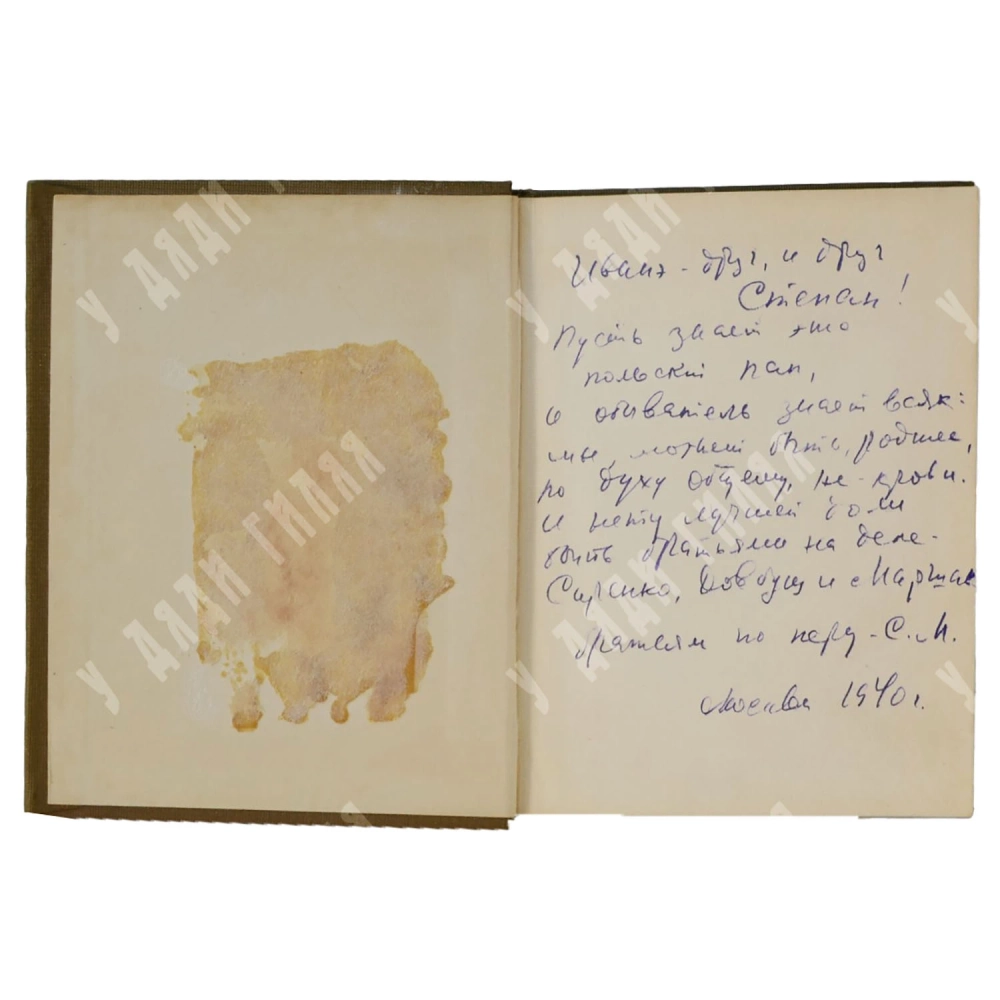 Иванэ - друг, и друг
Степан!
Пусть знает это
польский пан,
и обыватель знает всяк:
мы, может быть, родные,
по духу общему, не крови.
И нету лучшей доли
быть братьями на деле -
Сирко, Довбуш и Маршак
братьям по перу - С. М.
Москва 1940 г.
У ДЯДИ ГИЛЯЯ